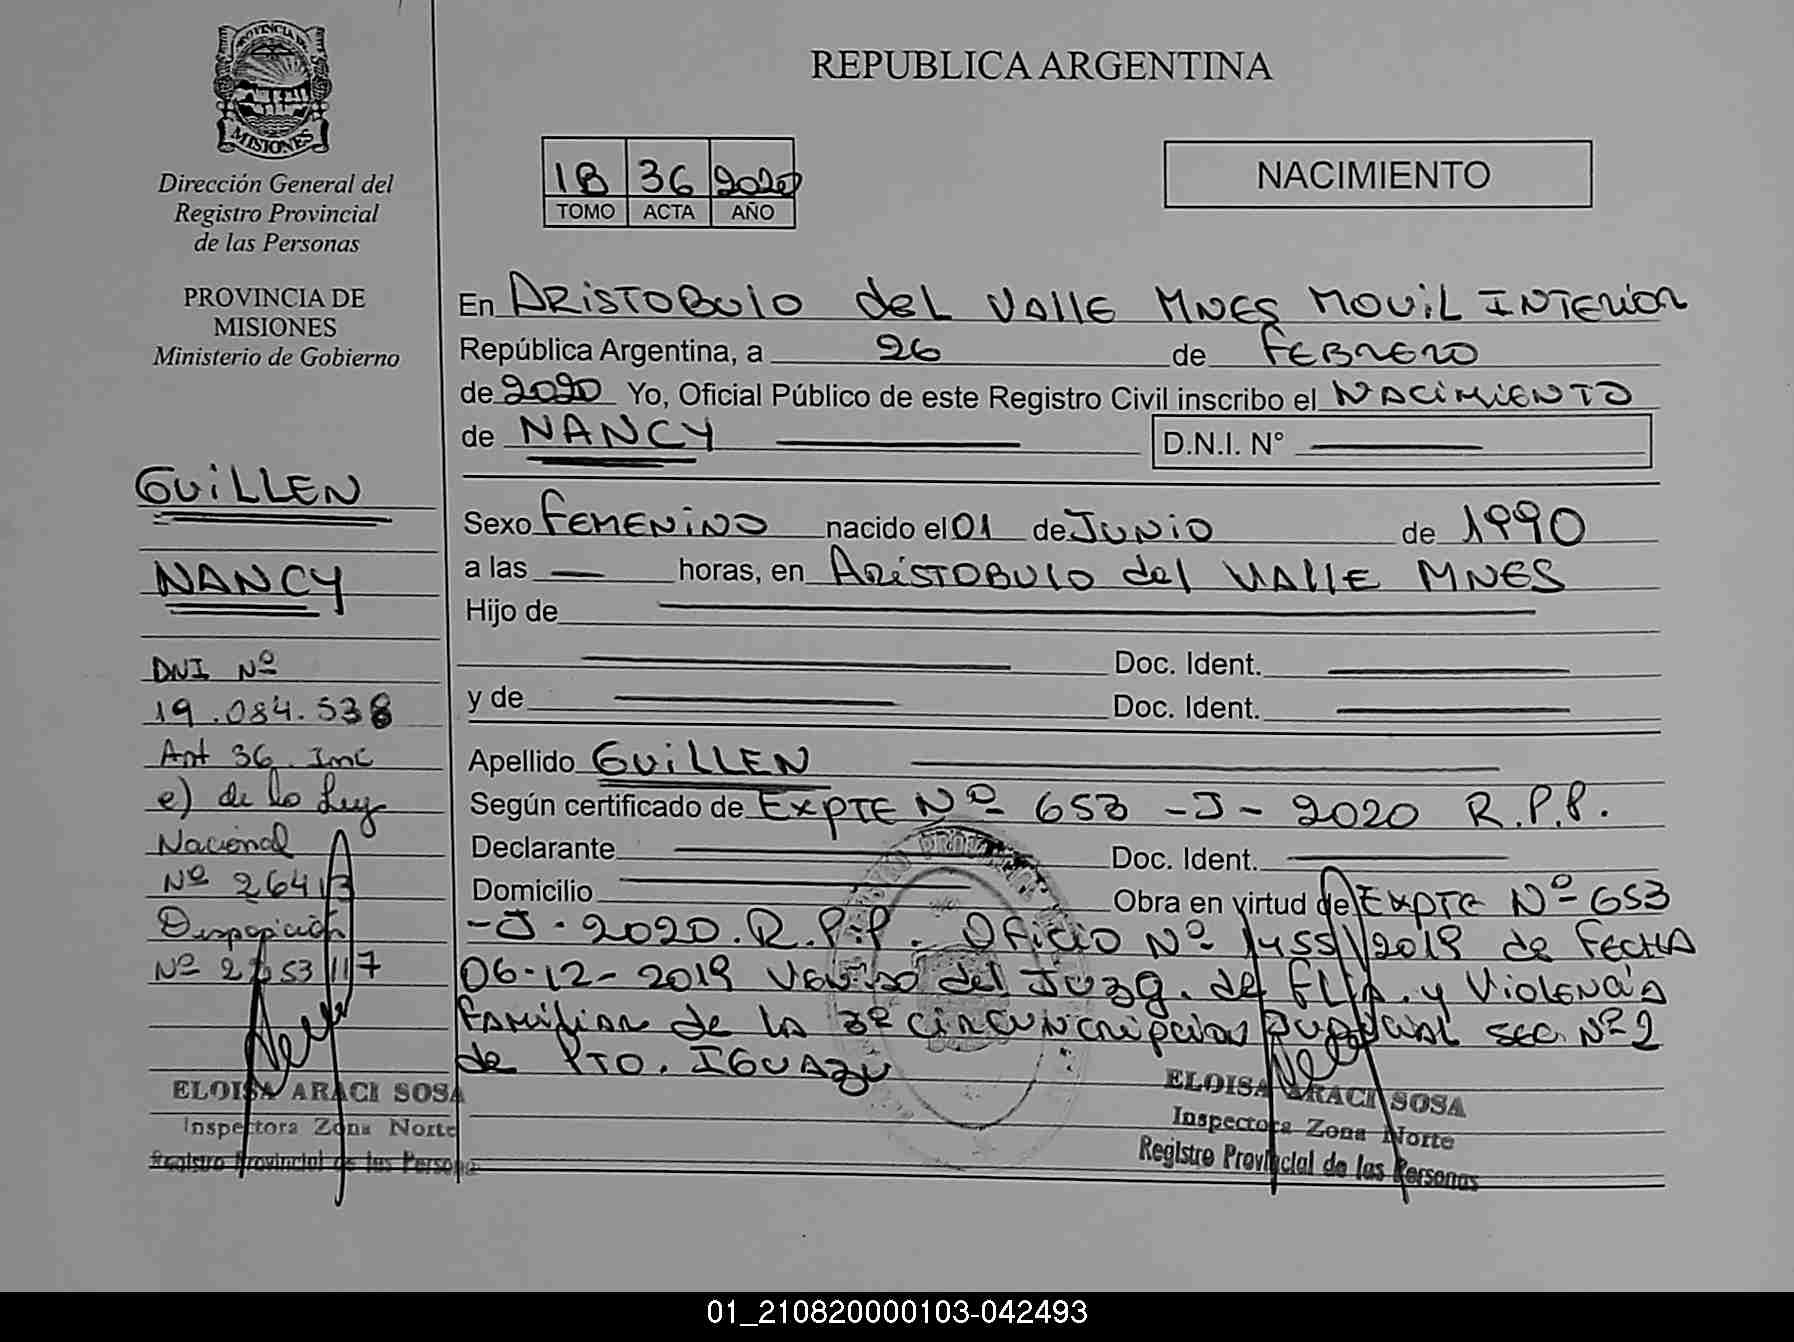 PROVINCIA DE
MISIONES
Dirección General del
Registro Provincial
de las Personas
PROVINCIA DE
MISIONES
Ministerio de Gobierno
GUILLEN
NANCY
DNI Nº
19.084.538
Art 36. Inc
e) de la Ley
Nacional
Nº 26413
Disposición
Nº 2253/17
ELOISA ARACI SOSA
Inspectora Zona Norte
Registro Provincial de las Persona
REPUBLICA ARGENTINA
1B 36 2020
TOMO ACTA AÑO
NACIMIENTO
En ARISTOBULO del VALLE MNES MOVIL INTERIOR
República Argentina, a 26 de FEBRERO
de 2020 Yo, Oficial Público de este Registro Civil inscribo el NACIMIENTO
de NANCY D.N.I. N°
Sexo FEMENINO nacido el 01 de JUNIO de 1990
a las horas, en ARISTOBULO del VALLE MNES
Hijo de
Doc. Ident.
y de Doc. Ident.
Apellido GUILLEN
Según certificado de EXPTE Nº 653 -J- 2020 R.P.P.
Declarante Doc. Ident.
Domicilio Obra en virtud de EXPTE Nº 653
-J- 2020. R.P.P. OFICIO Nº 1455/2019 de FECHA
06-12-2019 del Juzg. de y VIOLENCIA
FAMILIAR de la 3º CIRCUNCRIPCION JUDICIAL SEC. Nº 2
de PTO. IGUAZU
ELOISA ARACI SOSA
Inspectora Zona Norte
Registro Provincial de las Personas
01_210820000103-042493